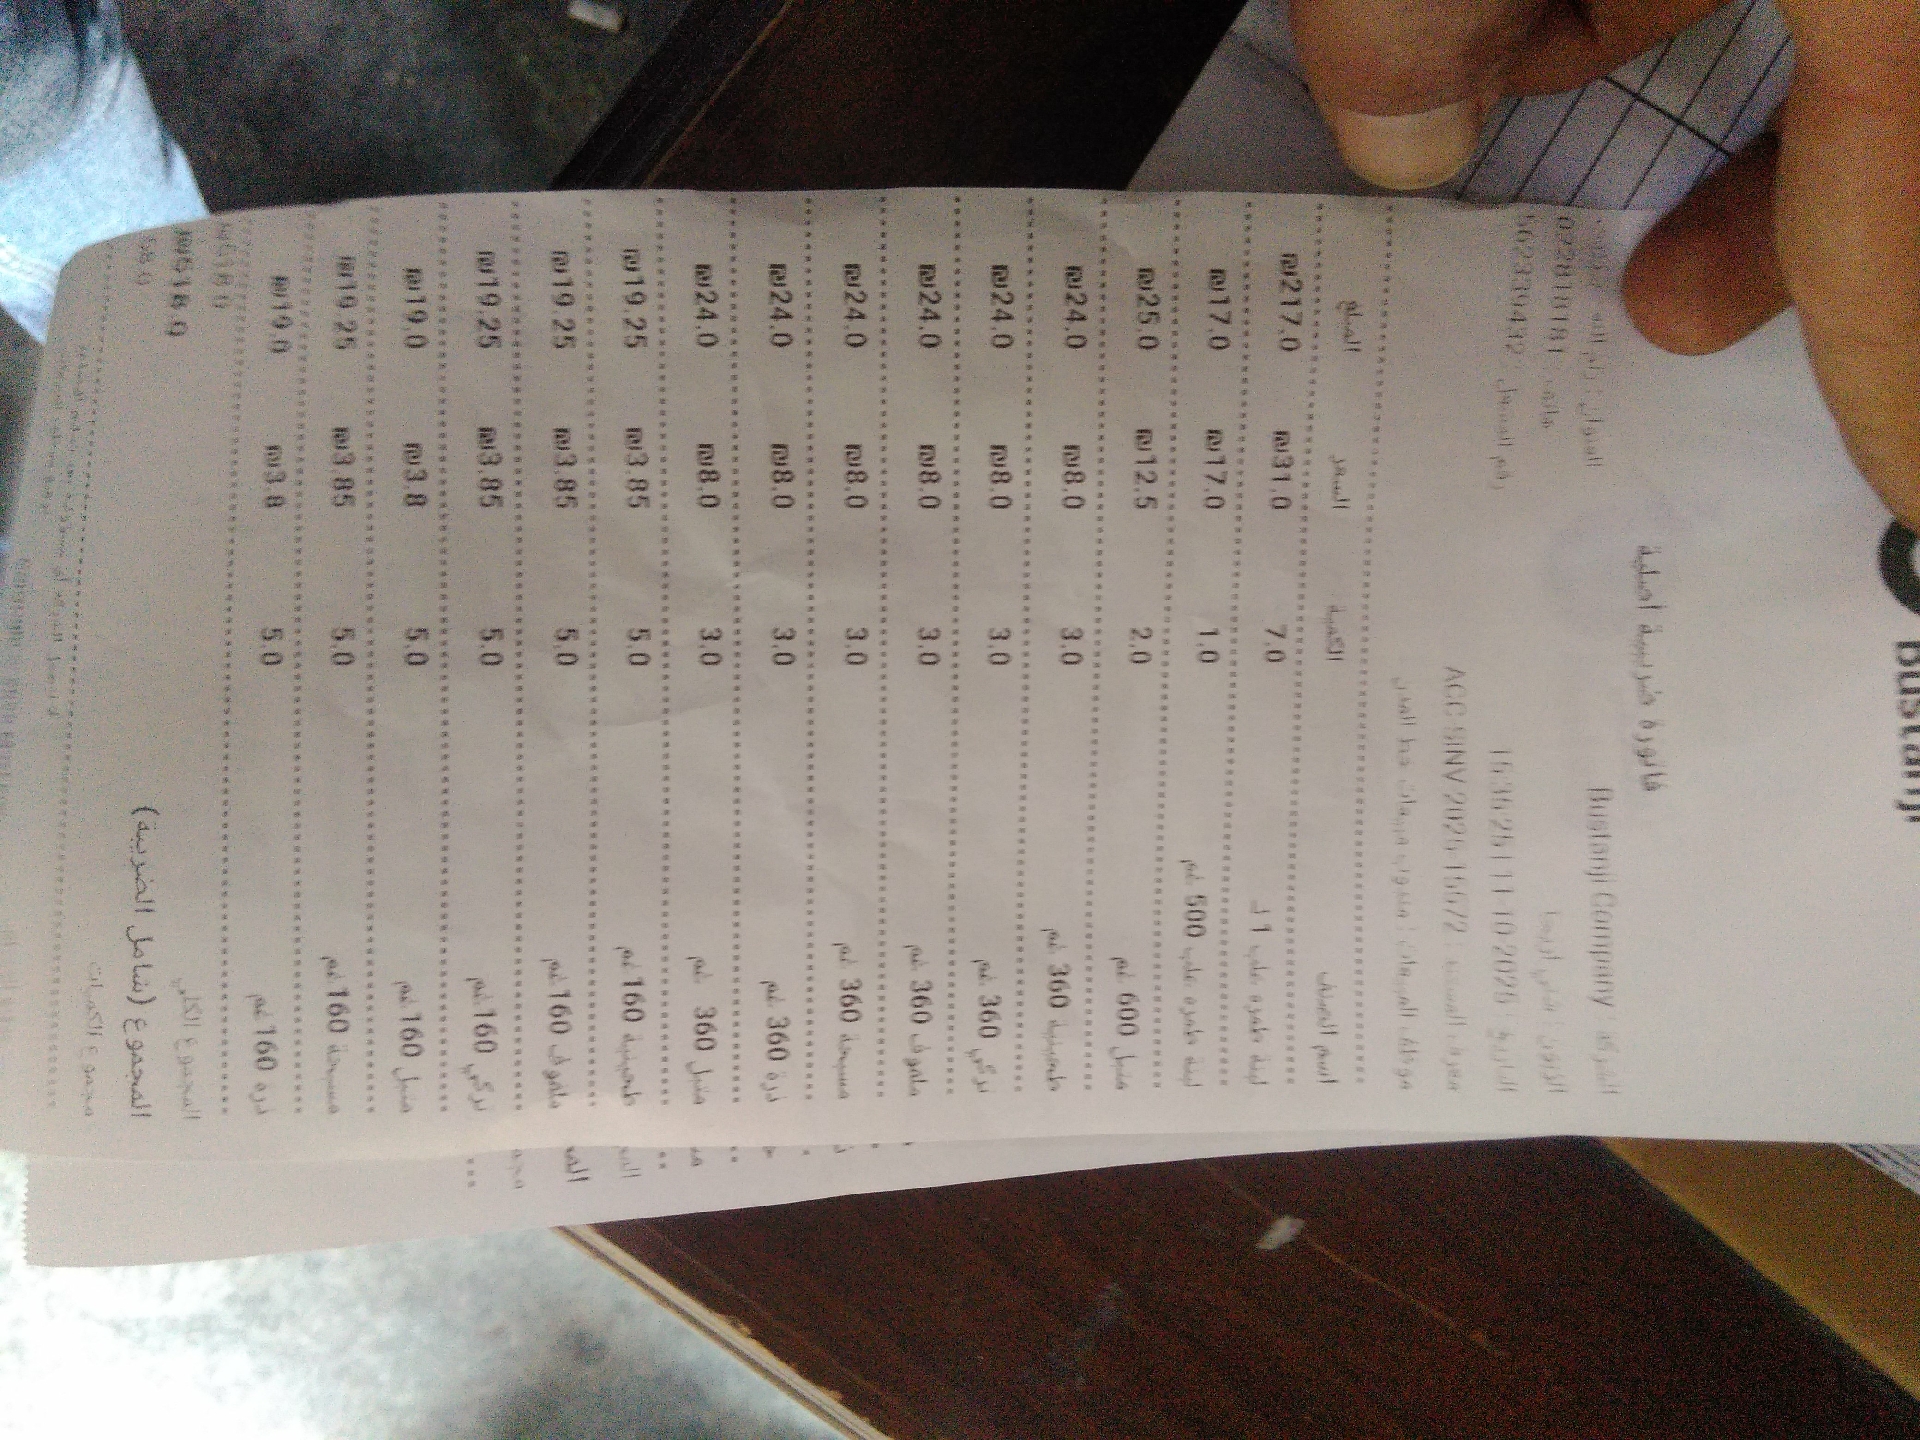 Bustanji
فاتورة ضريبية أصلية
الشركة: Bustanji Company
العنوان: رام الله
الزبون:
هاتف: 022818181
التاريخ: 11-10-2025
رقم المشغل: 562339432
معرف المستند: ACC-SINV-2025-15672
موظف المبيعات: مندوب مبيعات خط المدن
اسم الصنف الكمية السعر المبلغ
لبنة طمره علب 1 ك 7.0 ₪31.0 ₪217.0
لبنة طمره علب 500 غم 1.0 ₪17.0 ₪17.0
متبل 600 غم 2.0 ₪12.5 ₪25.0
طحينية 360 غم 3.0 ₪8.0 ₪24.0
تركي 360 غم 3.0 ₪8.0 ₪24.0
ملفوف 360 غم 3.0 ₪8.0 ₪24.0
مسبحة 360 غم 3.0 ₪8.0 ₪24.0
ذرة 360 غم 3.0 ₪8.0 ₪24.0
متبل 360 غم 3.0 ₪8.0 ₪24.0
طحينية 160 غم 5.0 ₪3.85 ₪19.25
ملفوف 160 غم 5.0 ₪3.85 ₪19.25
تركي 160 غم 5.0 ₪3.85 ₪19.25
متبل 160 غم 5.0 ₪3.8 ₪19.0
مسبحة 160 غم 5.0 ₪3.85 ₪19.25
ذرة 160 غم 5.0 ₪3.8 ₪19.0
المجموع الكلي ₪518.0
المجموع (شامل الضريبة) ₪518.0
مجموع الكميات 58.0